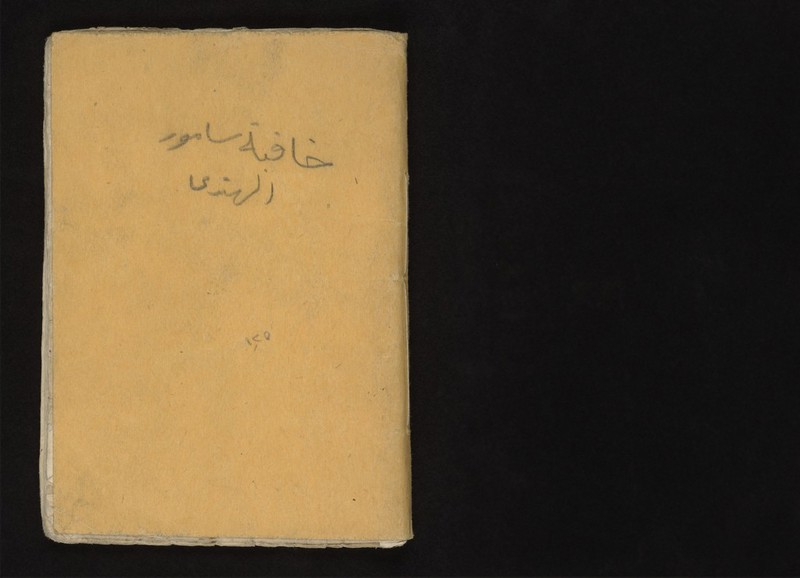 خافية سامور
الهندى
١٢٥